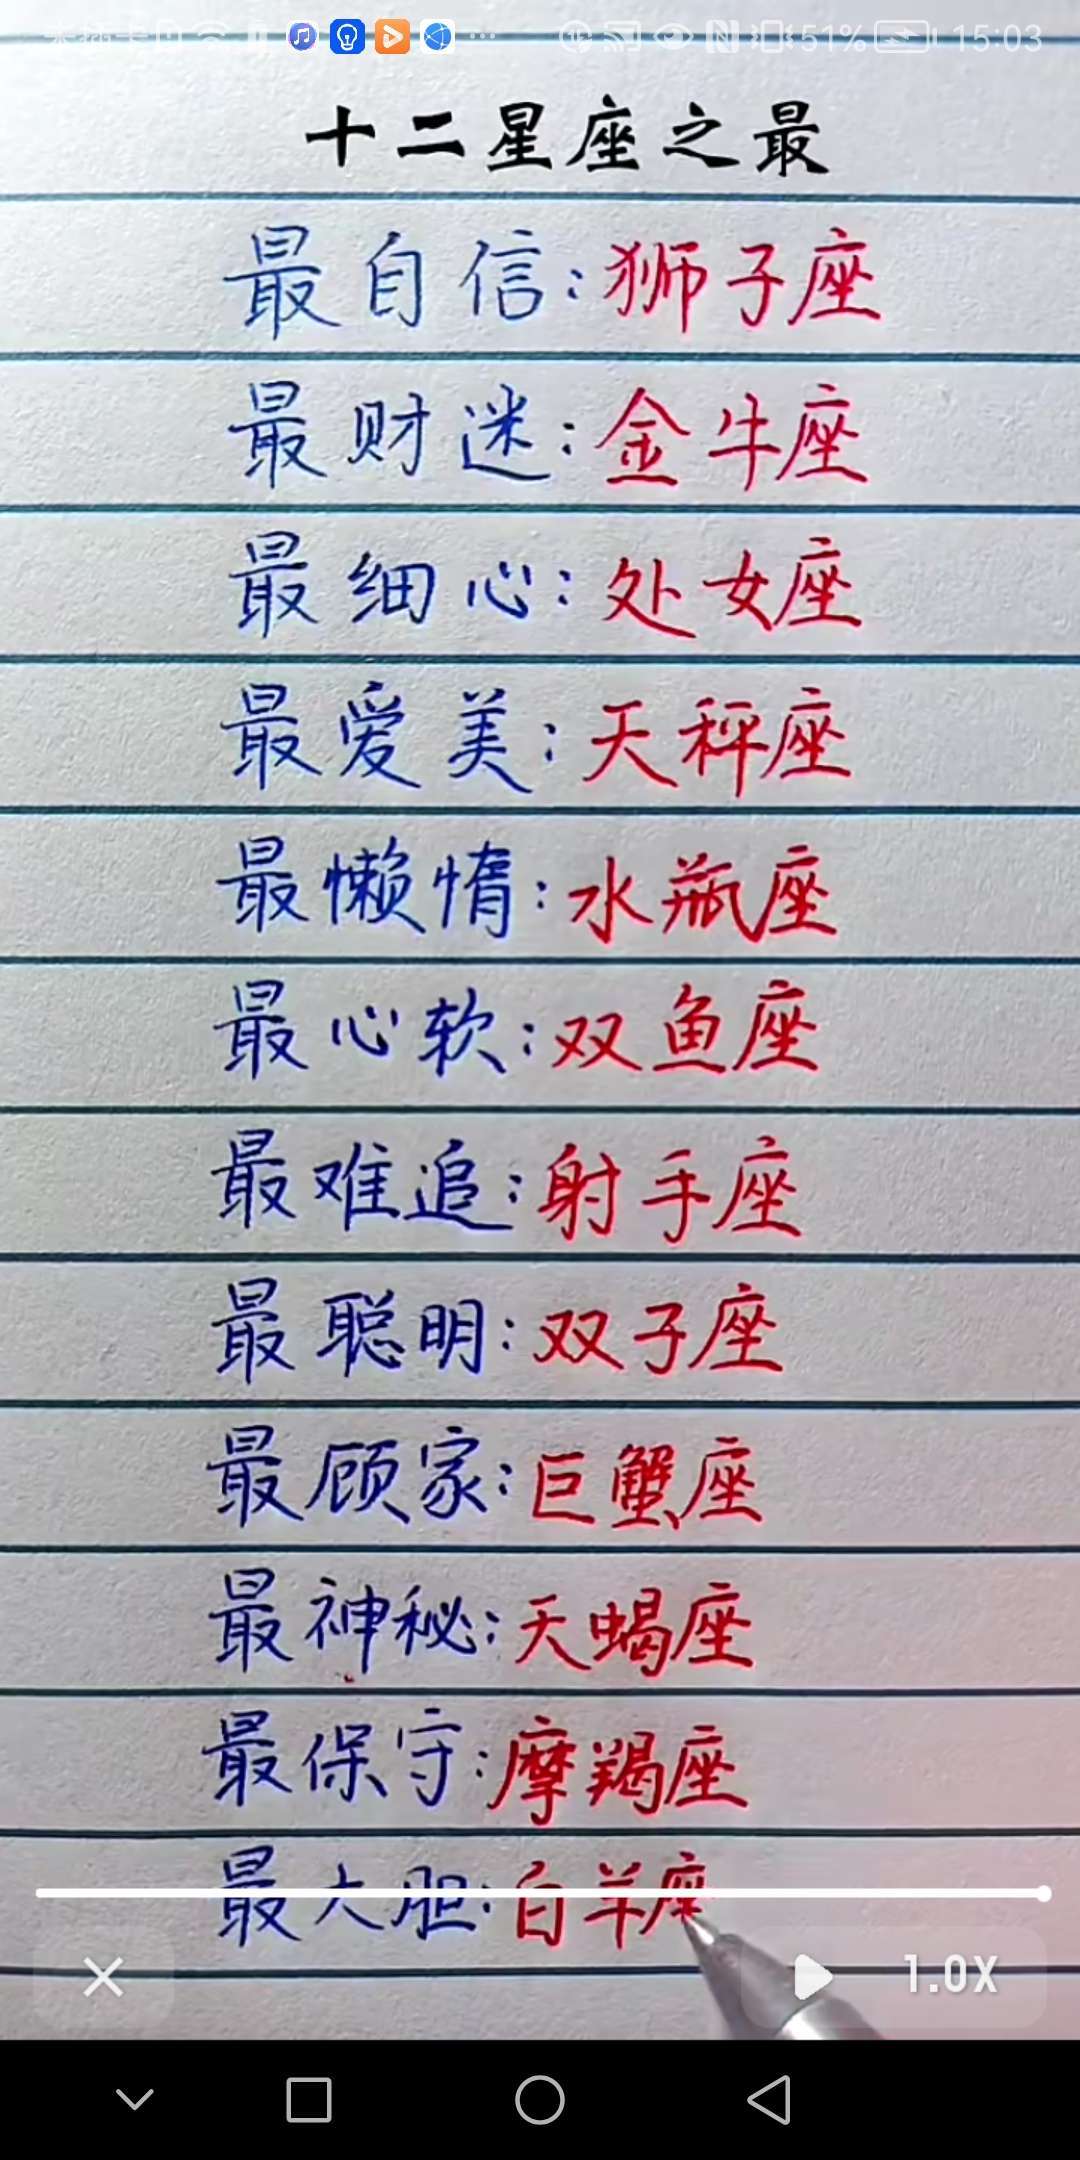 51% 15:03
十二星座之最
最自信:狮子座
最财迷:金牛座
最细心:处女座
最爱美:天秤座
最懒惰:水瓶座
最心软:双鱼座
最难追:射手座
最聪明:双子座
最顾家:巨蟹座
最神秘:天蝎座
最保守:摩羯座
最大胆:白羊座
1.0X